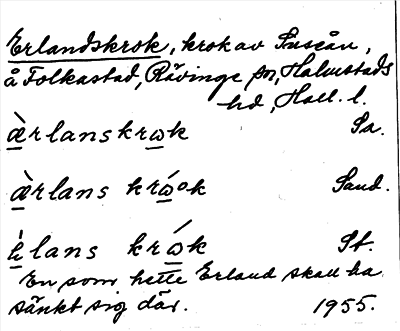 Erlandskrok, krok av Suseån,
å Folkastad, Rävinge sn, Halmstads
hd, Hall. l.
æ̀rlanskrωk Sa.
æ̀rlans krώok Sand.
lans krώk St.
En som hette Erland skall ha
sänkt sig där. 1955.